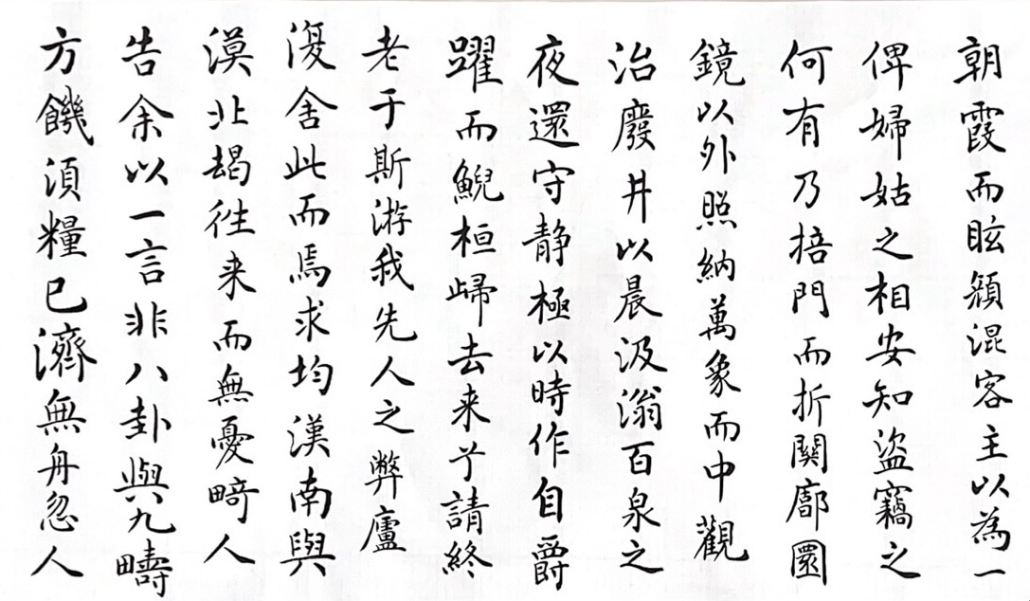 朝霞而眩顏混客主以為一
俾婦姑之相安知盜竊之
何有乃掊門而折關廓圜
鏡以外照納萬象而中觀
治廢井以晨汲滃百泉之
夜還守静極以時作自爵
躍而鯢桓歸去来兮請終
老于斯游我先人之弊廬
復舍此而焉求均漢南與
漠北朅徃来而無憂畸人
告余以一言非八卦與九疇
方饑須糧已濟無舟忽人